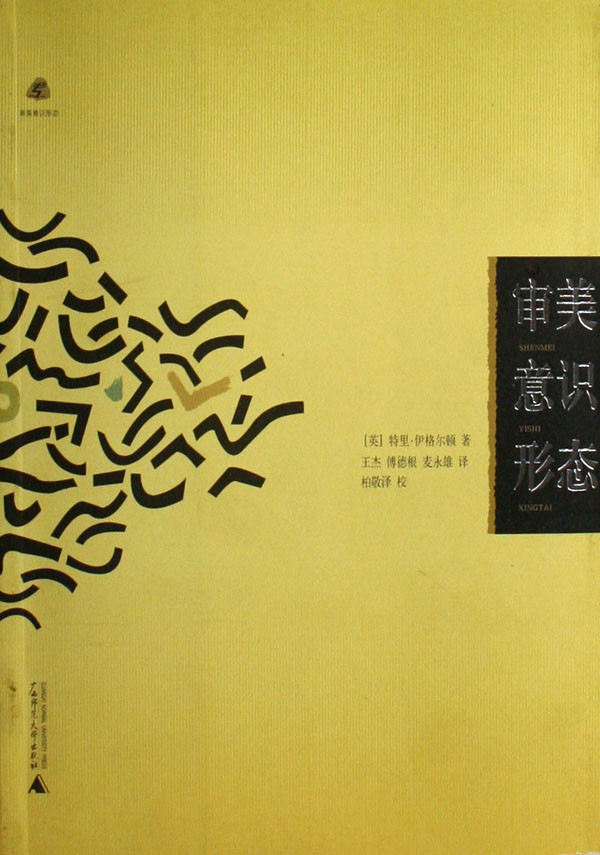 审美意识形态
审美
SHENMEI
意识
YISHI
形态
XINGTAI
[英] 特里·伊格尔顿 著
王杰 傅德根 麦永雄 译
柏敬泽 校
广西师范大学出版社
GUANGXI NORMAL UNIVERSITY PRESS